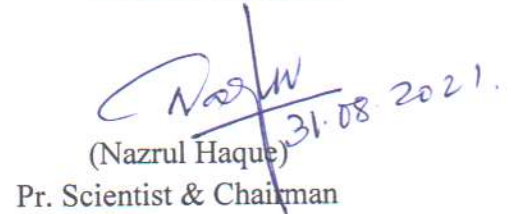 Nazrul
31.08.2021.
(Nazrul Haque)
Pr. Scientist & Chairman